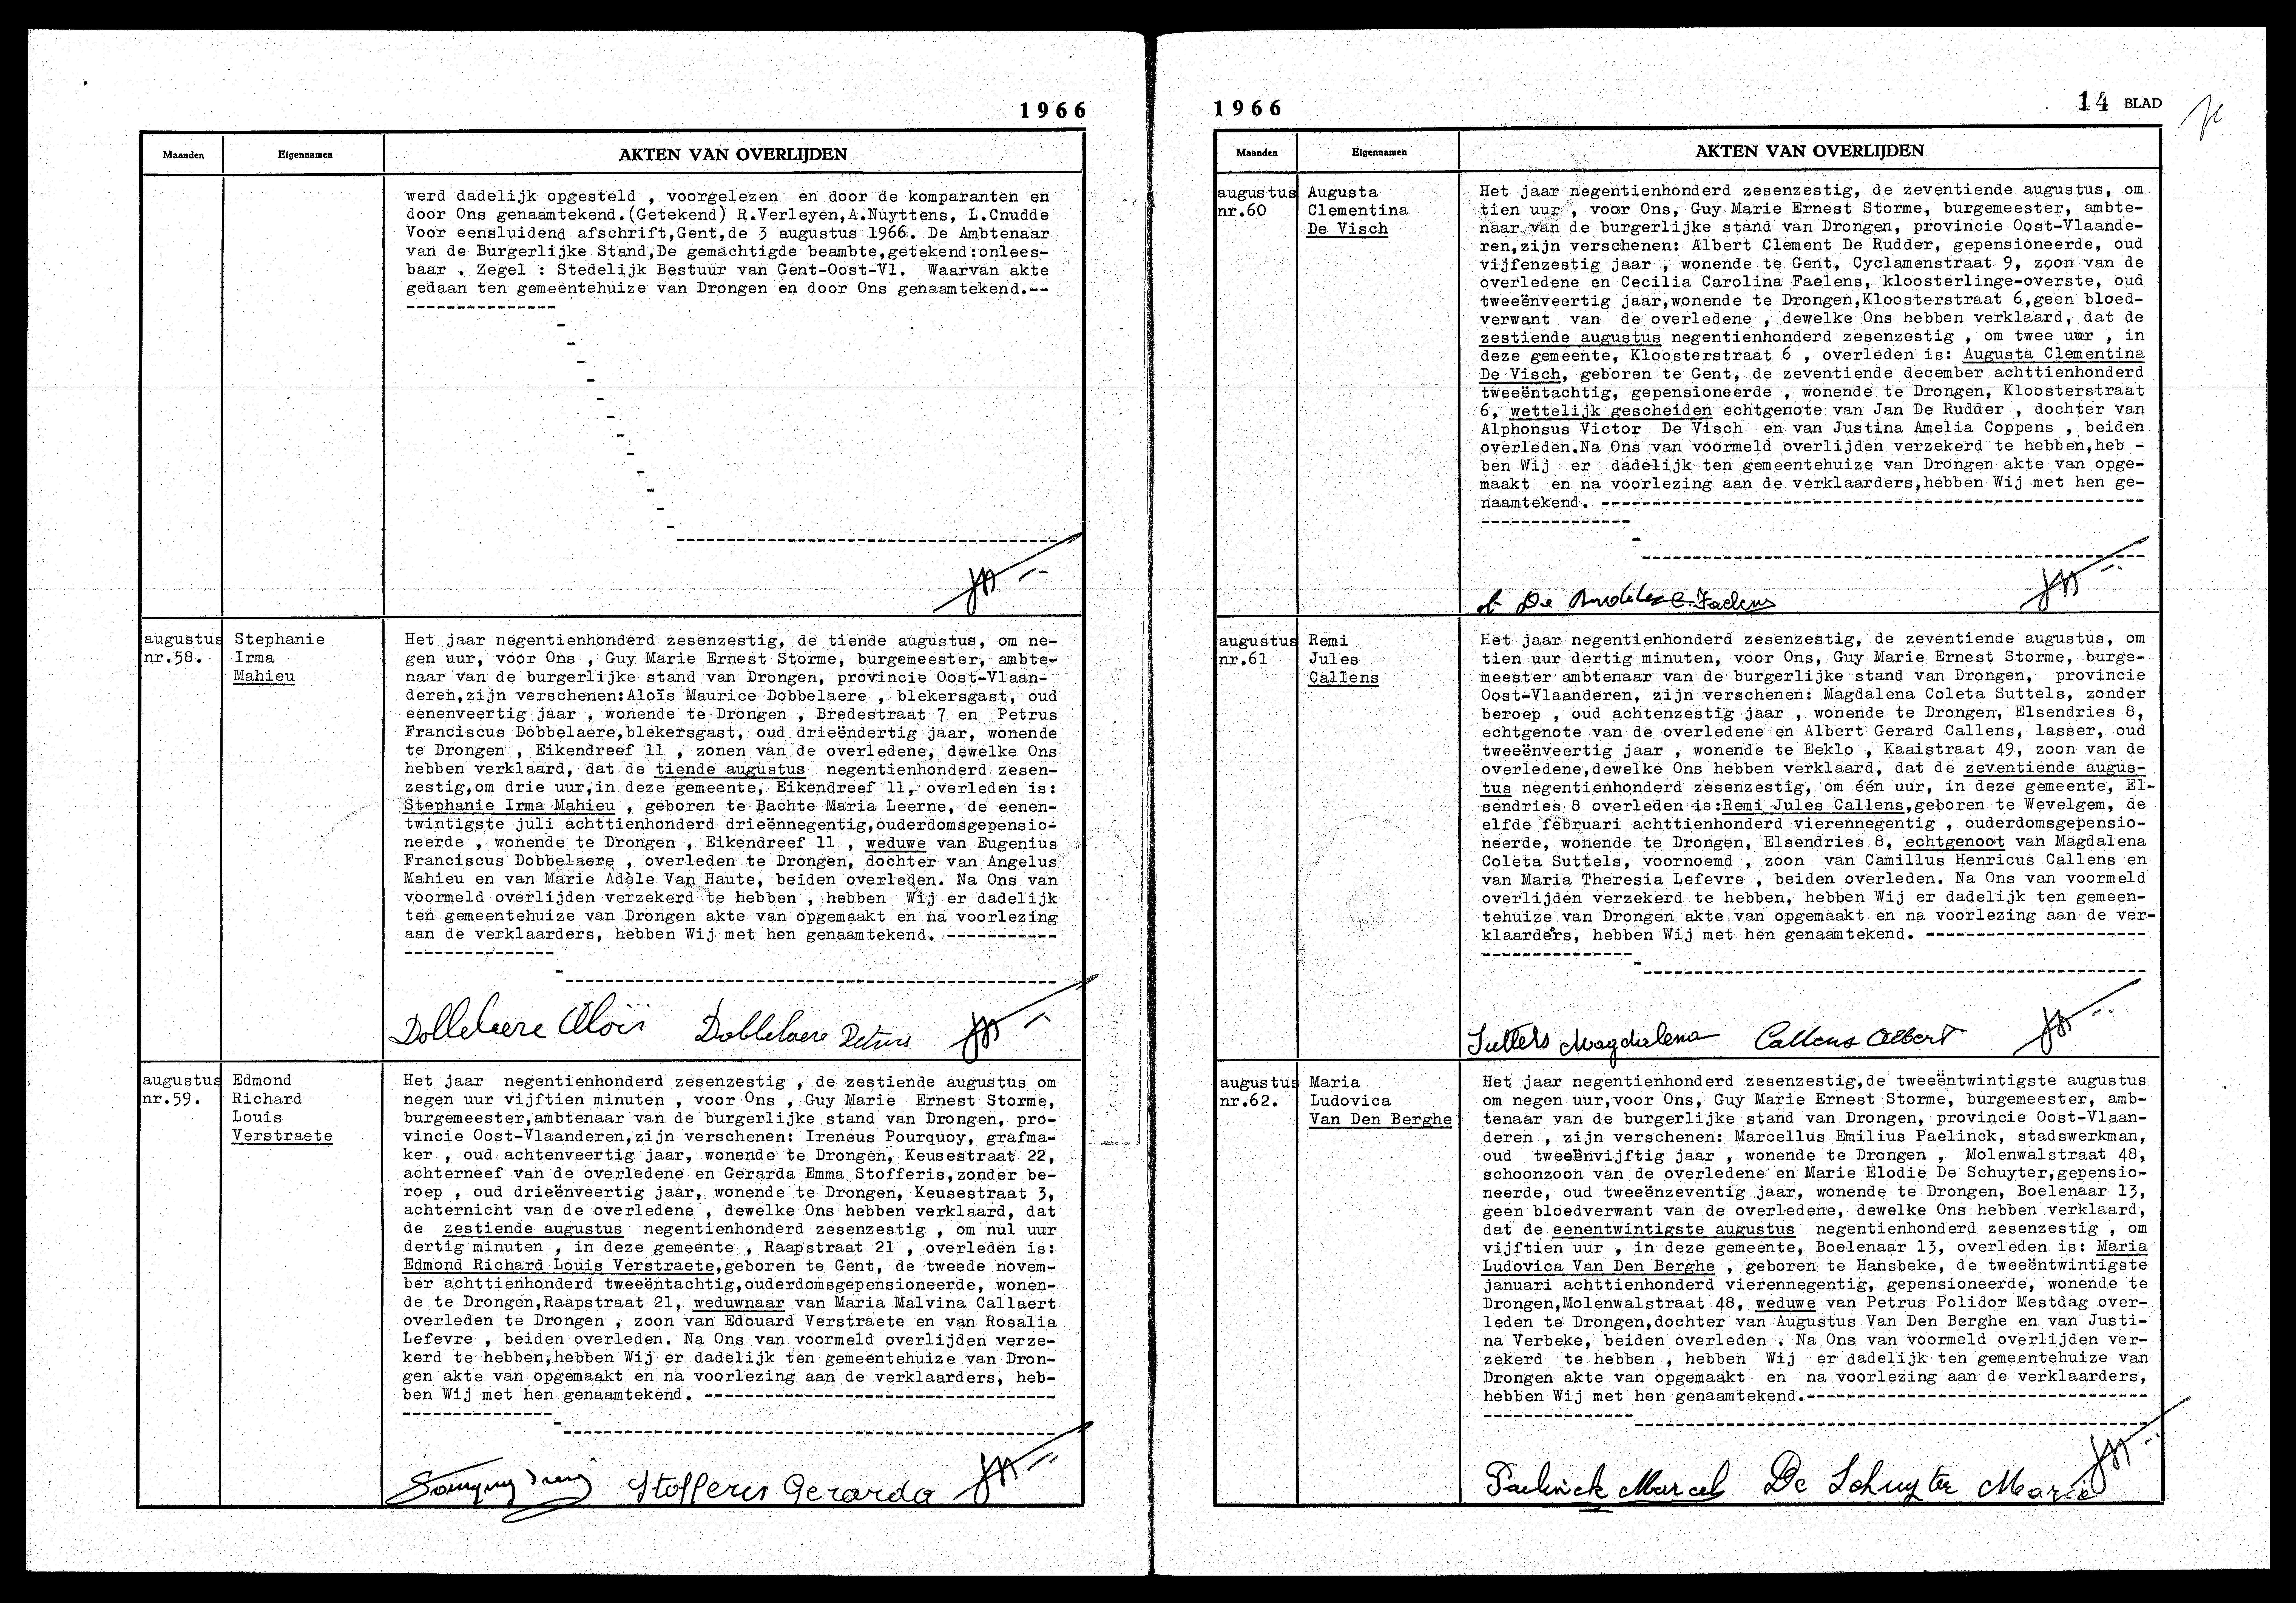 1966
Maanden
Eigennamen
AKTEN VAN OVERLIJDEN
werd dadelijk opgesteld , voorgelezen en door de komparanten en
door Ons genaamtekend.(Getekend) R.Verleyen,A.Nuyttens, L.Cnudde
Voor eensluidend afschrift,Gent,de 3 augustus 1966. De Ambtenaar
van de Burgerlijke Stand,De gemachtigde beambte,getekend:onlees-
baar . Zegel : Stedelijk Bestuur van Gent-Oost-Vl. Waarvan akte
gedaan ten gemeentehuize van Drongen en door Ons genaamtekend.--
augustus
nr.58.
Stephanie
Irma
Mahieu
Het jaar negentienhonderd zesenzestig, de tiende augustus, om ne-
gen uur, voor Ons , Guy Marie Ernest Storme, burgemeester, ambte-
naar van de burgerlijke stand van Drongen, provincie Oost-Vlaan-
deren,zijn verschenen:Aloïs Maurice Dobbelaere , blekersgast, oud
eenenveertig jaar , wonende te Drongen , Bredestraat 7 en Petrus
Franciscus Dobbelaere,blekersgast, oud drieëndertig jaar, wonende
te Drongen , Eikendreef 11 , zonen van de overledene, dewelke Ons
hebben verklaard, dat de tiende augustus negentienhonderd zesen-
zestig,om drie uur,in deze gemeente, Eikendreef 11, overleden is:
Stephanie Irma Mahieu , geboren te Bachte Maria Leerne, de eenen-
twintigste juli achttienhonderd drieënnegentig,ouderdomsgepensio-
neerde , wonende te Drongen , Eikendreef 11 , weduwe van Eugenius
Franciscus Dobbelaere , overleden te Drongen, dochter van Angelus
Mahieu en van Marie Adèle Van Haute, beiden overleden. Na Ons van
voormeld overlijden verzekerd te hebben , hebben Wij er dadelijk
ten gemeentehuize van Drongen akte van opgemaakt en na voorlezing
aan de verklaarders, hebben Wij met hen genaamtekend. -----------
Dobbelaere Aloïs Dobbelaere Petrus
augustus
nr.59.
Edmond
Richard
Louis
Verstraete
Het jaar negentienhonderd zesenzestig , de zestiende augustus om
negen uur vijftien minuten , voor Ons , Guy Marie Ernest Storme,
burgemeester,ambtenaar van de burgerlijke stand van Drongen, pro-
vincie Oost-Vlaanderen,zijn verschenen: Ireneus Pourquoy, grafma-
ker , oud achtenveertig jaar, wonende te Drongen, Keusestraat 22,
achterneef van de overledene en Gerarda Emma Stofferis,zonder be-
roep , oud drieënveertig jaar, wonende te Drongen, Keusestraat 3,
achternicht van de overledene , dewelke Ons hebben verklaard, dat
de zestiende augustus negentienhonderd zesenzestig , om nul uur
dertig minuten , in deze gemeente , Raapstraat 21 , overleden is:
Edmond Richard Louis Verstraete,geboren te Gent, de tweede novem-
ber achttienhonderd tweeëntachtig,ouderdomsgepensioneerde, wonen-
de te Drongen,Raapstraat 21, weduwnaar van Maria Malvina Callaert
overleden te Drongen , zoon van Edouard Verstraete en van Rosalia
Lefevre , beiden overleden. Na Ons van voormeld overlijden verze-
kerd te hebben,hebben Wij er dadelijk ten gemeentehuize van Dron-
gen akte van opgemaakt en na voorlezing aan de verklaarders, heb-
ben Wij met hen genaamtekend. -----------------------------------
Stofferis Gerarda
1966
14 BLAD
Maanden
Eigennamen
AKTEN VAN OVERLIJDEN
augustus
nr.60
Augusta
Clementina
De Visch
Het jaar negentienhonderd zesenzestig, de zeventiende augustus, om
tien uur , voor Ons, Guy Marie Ernest Storme, burgemeester, ambte-
naar van de burgerlijke stand van Drongen, provincie Oost-Vlaande-
ren,zijn verschenen: Albert Clement De Rudder, gepensioneerde, oud
vijfenzestig jaar , wonende te Gent, Cyclamenstraat 9, zoon van de
overledene en Cecilia Carolina Faelens, kloosterlinge-overste, oud
tweeënveertig jaar,wonende te Drongen,Kloosterstraat 6,geen bloed-
verwant van de overledene , dewelke Ons hebben verklaard, dat de
zestiende augustus negentienhonderd zesenzestig , om twee uur , in
deze gemeente, Kloosterstraat 6 , overleden is: Augusta Clementina
De Visch, geboren te Gent, de zeventiende december achttienhonderd
tweeëntachtig, gepensioneerde , wonende te Drongen, Kloosterstraat
6, wettelijk gescheiden echtgenote van Jan De Rudder , dochter van
Alphonsus Victor De Visch en van Justina Amelia Coppens , beiden
overleden.Na Ons van voormeld overlijden verzekerd te hebben,heb -
ben Wij er dadelijk ten gemeentehuize van Drongen akte van opge-
maakt en na voorlezing aan de verklaarders,hebben Wij met hen ge-
naamtekend. -----------------------------------------------------
A. De Rudder C. Faelens
augustus
nr.61
Remi
Jules
Callens
Het jaar negentienhonderd zesenzestig, de zeventiende augustus, om
tien uur dertig minuten, voor Ons, Guy Marie Ernest Storme, burge-
meester ambtenaar van de burgerlijke stand van Drongen, provincie
Oost-Vlaanderen, zijn verschenen: Magdalena Coleta Suttels, zonder
beroep , oud achtenzestig jaar , wonende te Drongen, Elsendries 8,
echtgenote van de overledene en Albert Gerard Callens, lasser, oud
tweeënveertig jaar , wonende te Eeklo , Kaaistraat 49, zoon van de
overledene,dewelke Ons hebben verklaard, dat de zeventiende augus-
tus negentienhonderd zesenzestig, om één uur, in deze gemeente, El-
sendries 8 overleden is:Remi Jules Callens,geboren te Wevelgem, de
elfde februari achttienhonderd vierennegentig , ouderdomsgepensio-
neerde, wonende te Drongen, Elsendries 8, echtgenoot van Magdalena
Coleta Suttels, voornoemd , zoon van Camillus Henricus Callens en
van Maria Theresia Lefevre , beiden overleden. Na Ons van voormeld
overlijden verzekerd te hebben, hebben Wij er dadelijk ten gemeen-
tehuize van Drongen akte van opgemaakt en na voorlezing aan de ver-
klaarders, hebben Wij met hen genaamtekend. ---------------------
Suttels Magdalena Callens Albert
augustus
nr.62.
Maria
Ludovica
Van Den Berghe
Het jaar negentienhonderd zesenzestig,de tweeëntwintigste augustus
om negen uur,voor Ons, Guy Marie Ernest Storme, burgemeester, amb-
tenaar van de burgerlijke stand van Drongen, provincie Oost-Vlaan-
deren , zijn verschenen: Marcellus Emilius Paelinck, stadswerkman,
oud tweeënvijftig jaar , wonende te Drongen , Molenwalstraat 48,
schoonzoon van de overledene en Marie Elodie De Schuyter,gepensio-
neerde, oud tweeënzeventig jaar, wonende te Drongen, Boelenaar 13,
geen bloedverwant van de overledene, dewelke Ons hebben verklaard,
dat de eenentwintigste augustus negentienhonderd zesenzestig , om
vijftien uur , in deze gemeente, Boelenaar 13, overleden is: Maria
Ludovica Van Den Berghe , geboren te Hansbeke, de tweeëntwintigste
januari achttienhonderd vierennegentig, gepensioneerde, wonende te
Drongen,Molenwalstraat 48, weduwe van Petrus Polidor Mestdag over-
leden te Drongen,dochter van Augustus Van Den Berghe en van Justi-
na Verbeke, beiden overleden . Na Ons van voormeld overlijden ver-
zekerd te hebben , hebben Wij er dadelijk ten gemeentehuize van
Drongen akte van opgemaakt en na voorlezing aan de verklaarders,
hebben Wij met hen genaamtekend.---------------------------------
Paelinck Marcel De Schuyter Marie